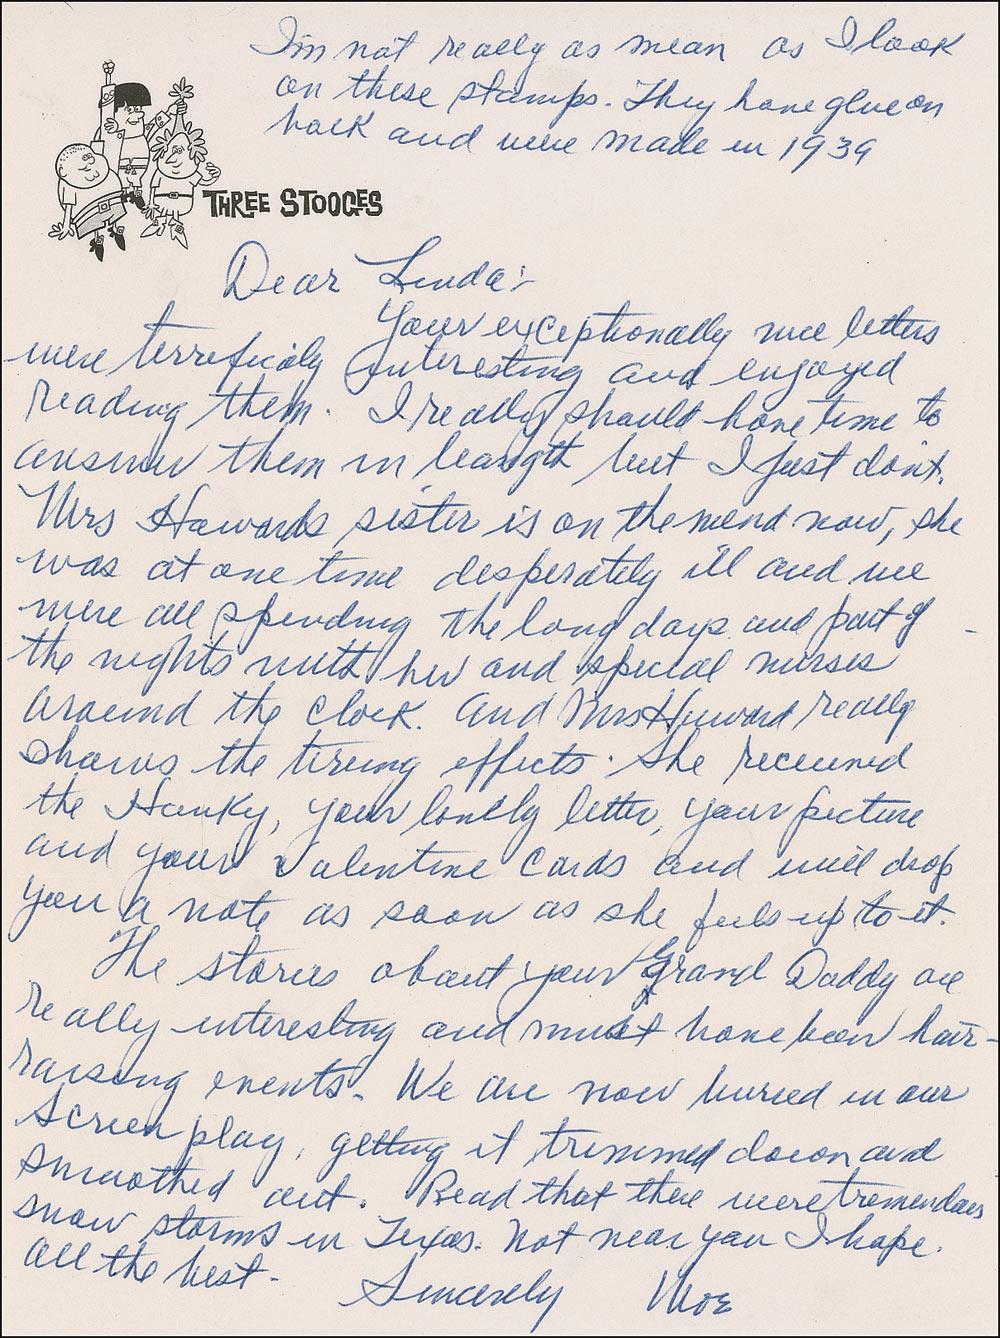 I'm not really as mean as I look
on these stamps. They have glue on
back and were made in 1939
THREE STOOGES
Dear Linda:
Your exceptionally nice letters
were terrificaly interesting and enjoyed
reading them. I really should have time to
answer them in leangth but I just don't.
Mrs Howards sister is on the mend now, she
was at one time desperately ill and we
were all spending the long days and part of
the nights with her and special nurses
around the clock. And Mrs Howard really
shows the tireing effects. She received
the Hanky, your lovely letter, your picture
and your Valentine Cards and will drop
you a note as soon as she feels up to it.
The stories about your Grand Daddy are
really interesting and must have been hair-
raising events. We are now buried in our
Screen play, getting it trimmed down and
smoothed out. Read that there were tremendous
snow storms in Texas. Not near you I hope.
All the best.
Sincerely Moe